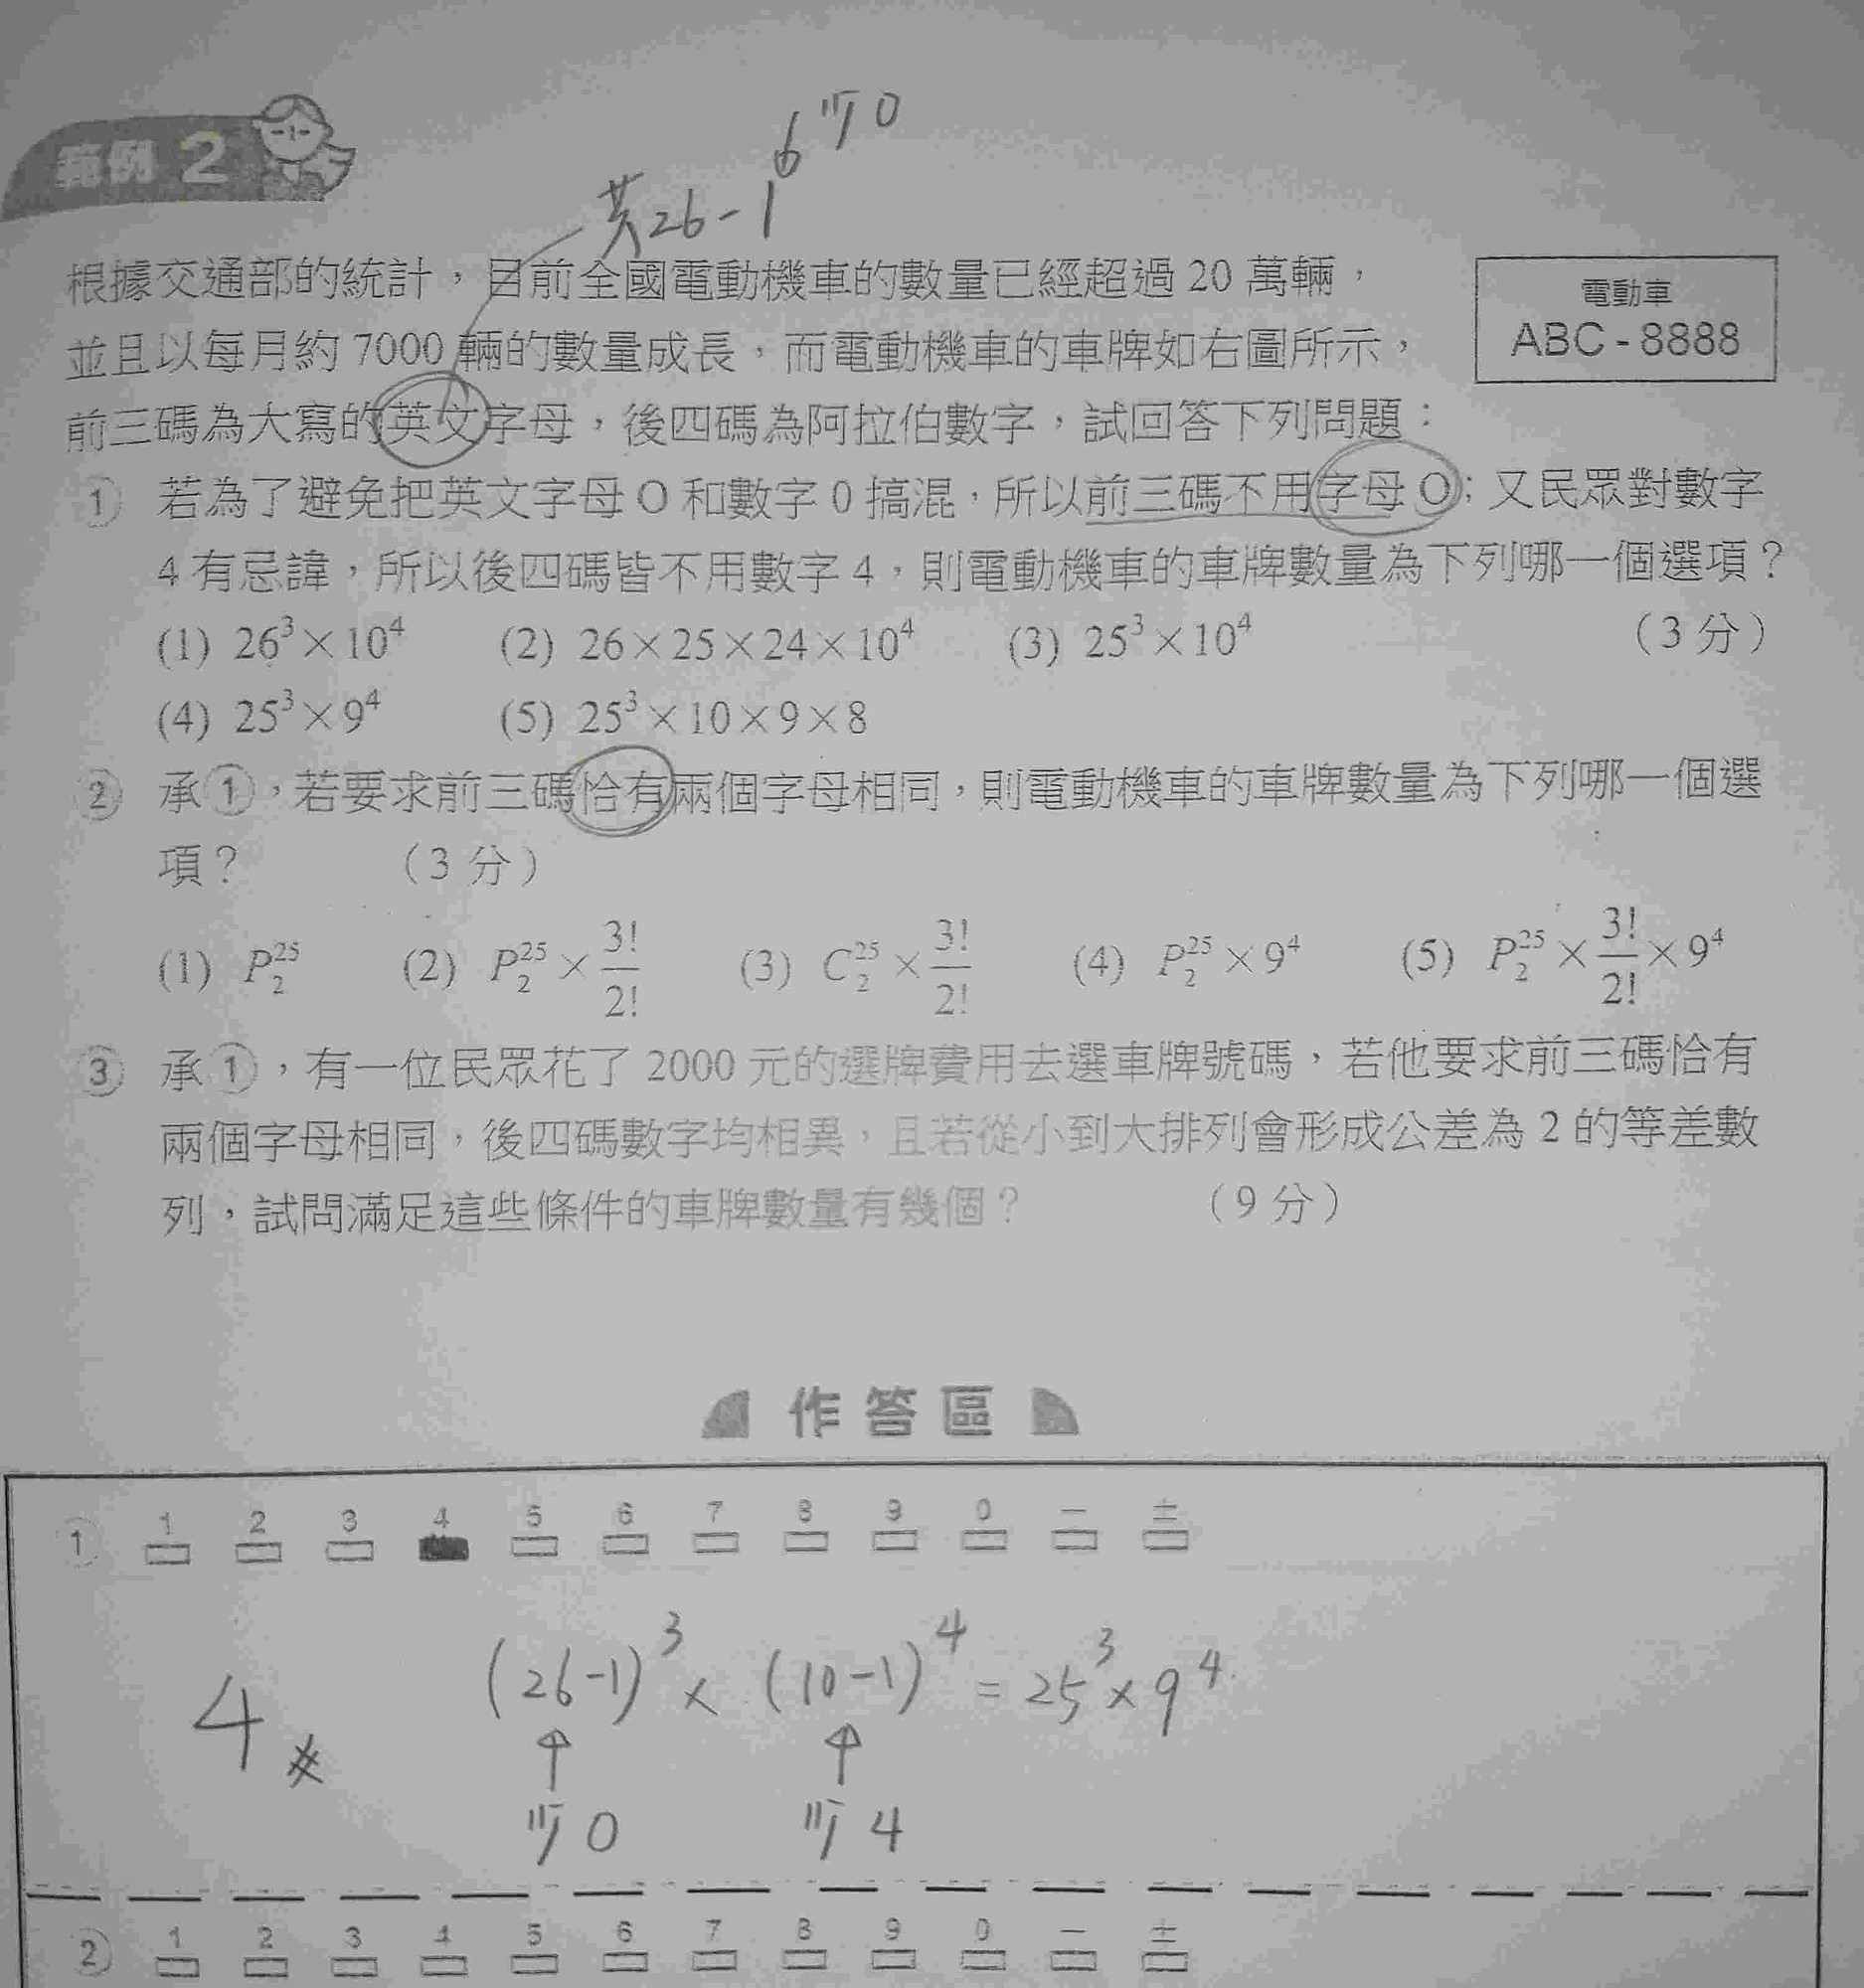 範例 2
刪 O
共 26-1
根據交通部的統計，目前全國電動機車的數量已經超過 20 萬輛，
並且以每月約 7000 輛的數量成長，而電動機車的車牌如右圖所示，
前三碼為大寫的英文字母，後四碼為阿拉伯數字，試回答下列問題：
電動車
ABC - 8888
① 若為了避免把英文字母 O 和數字 0 搞混，所以前三碼不用字母 O；又民眾對數字
4 有忌諱，所以後四碼皆不用數字 4，則電動機車的車牌數量為下列哪一個選項？
(1) 26³×10⁴ (2) 26×25×24×10⁴ (3) 25³×10⁴ （3 分）
(4) 25³×9⁴ (5) 25³×10×9×8
② 承①，若要求前三碼恰有兩個字母相同，則電動機車的車牌數量為下列哪一個選
項？ （3 分）
(1) P₂²⁵ (2) P₂²⁵×3!/2! (3) C₂²⁵×3!/2! (4) P₂²⁵×9⁴ (5) P₂²⁵×3!/2!×9⁴
③ 承①，有一位民眾花了 2000 元的選牌費用去選車牌號碼，若他要求前三碼恰有
兩個字母相同，後四碼數字均相異，且若從小到大排列會形成公差為 2 的等差數
列，試問滿足這些條件的車牌數量有幾個？ （9 分）
作答區
① 1 2 3 4 5 6 7 8 9 0 − ±
4 (26-1)³ × (10-1)⁴ = 25³×9⁴
↑ ↑
刪 O 刪 4
② 1 2 3 4 5 6 7 8 9 0 − ±